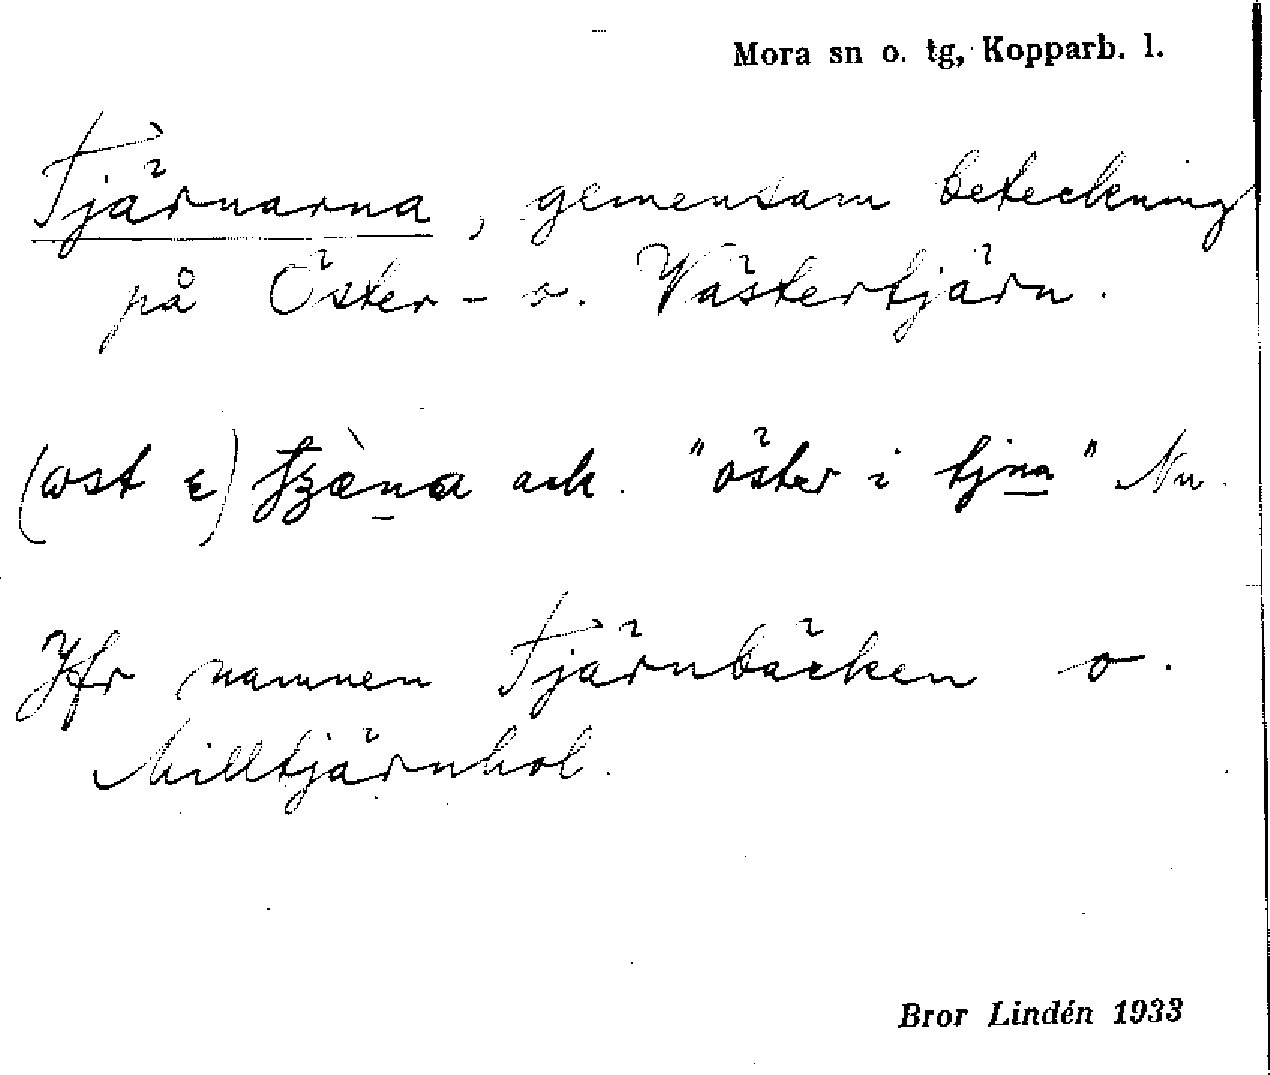 Mora sn o. tg, Kopparb. l.
Tjärnarna, gemensam beteckning
på Öster- o. Västertjärn.
(ɷst ε) tʒæ̀na ack. "öster i tjna" Nu.
Jfr namnen Tjärnbäcken o.
Milltjärnhol.
Bror Lindén 1933